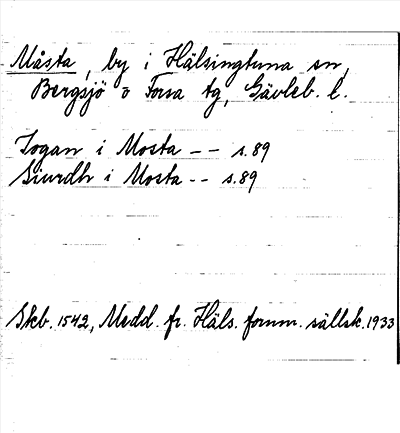 Måsta, by i Hälsingtuna sn,
Bergsjö o Forsa tg, Gävleb. l.
Jogan i Mosta -- s.89
Siurdh i Mosta -- s.89
Skb. 1542, Medd. fr. Häls. fornm. sällsk. 1933